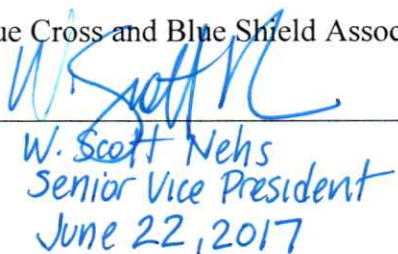 ue Cross and Blue Shield Assoc
W. Scott N
W. Scott Nehs
Senior Vice President
June 22, 2017